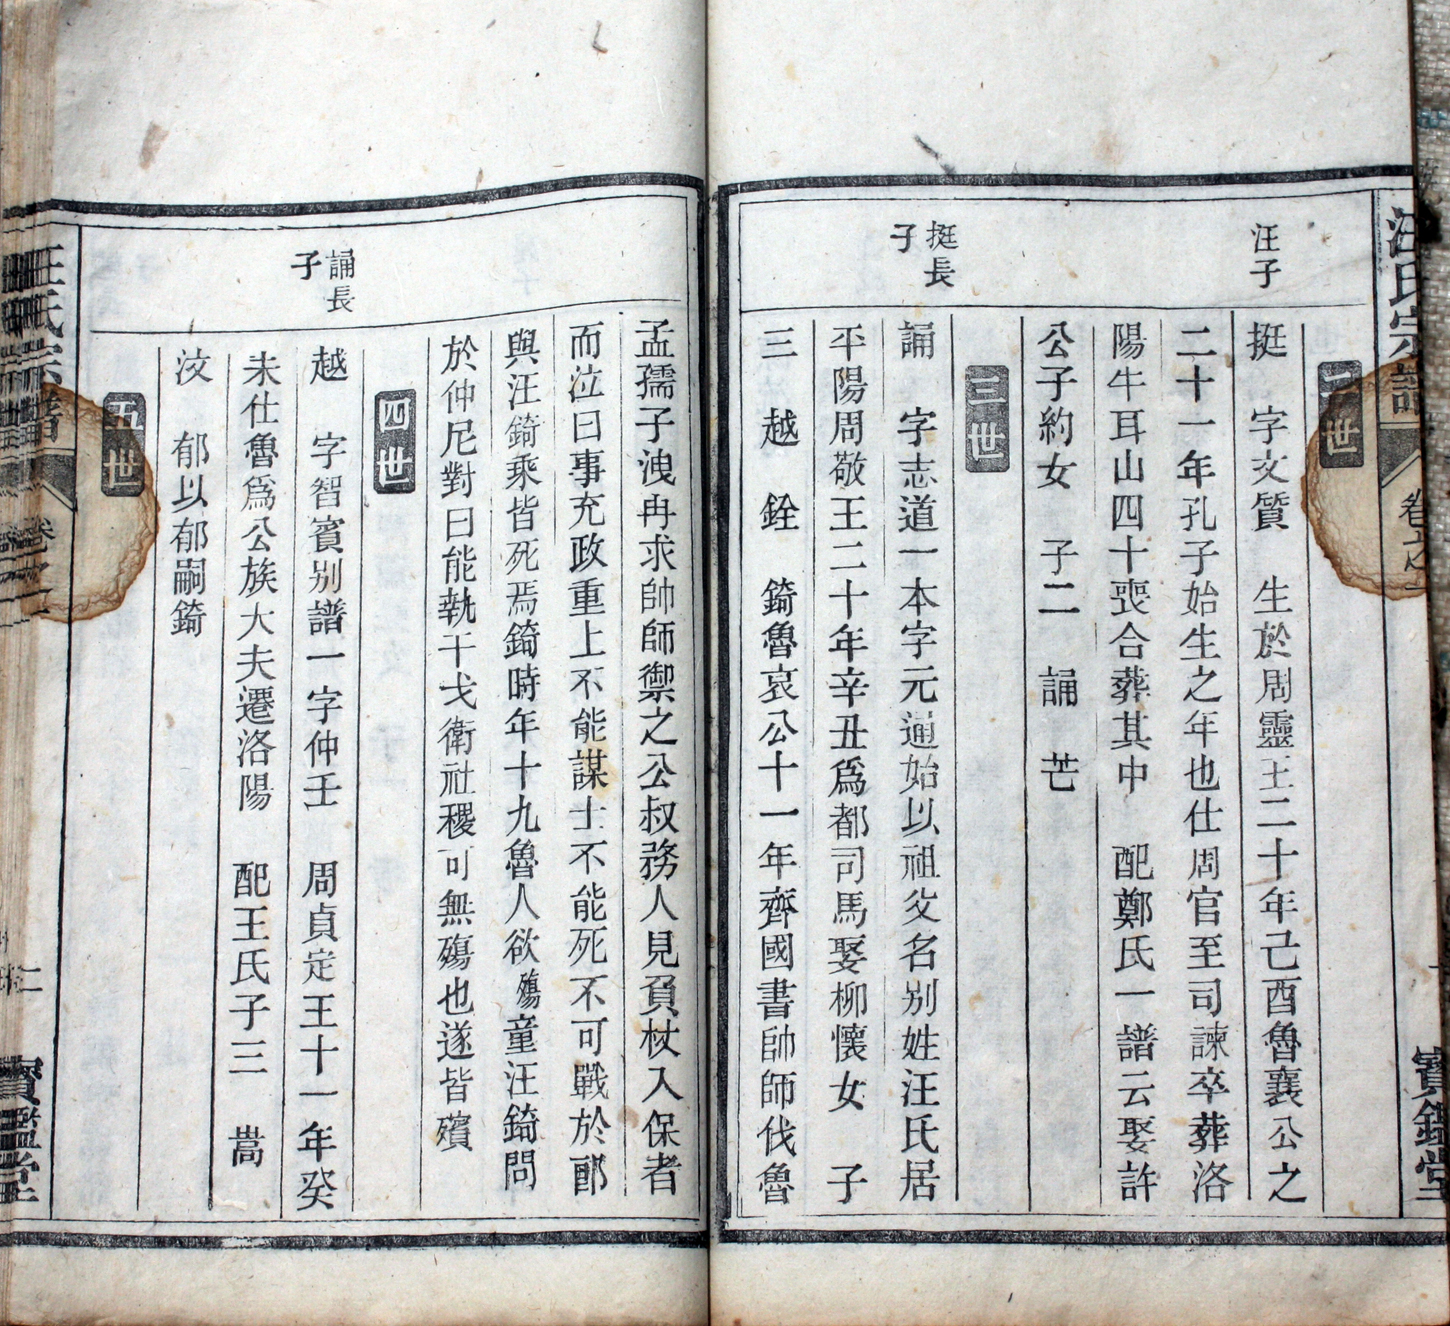 汪氏宗譜 卷之 寶鑑堂
二世
汪子
挺 字文質 生於周靈王二十年己酉魯襄公之
二十一年孔子始生之年也仕周官至司諫卒葬洛
陽牛耳山四十喪合葬其中 配鄭氏一譜云娶許
公子約女 子二 誦 芒
三世
挺長
子
誦 字志道一本字元通始以祖父名別姓汪氏居
平陽周敬王二十年辛丑爲都司馬娶柳懷女 子
三 越 銓 錡魯哀公十一年齊國書帥師伐魯
孟孺子洩冉求帥師禦之公叔務人見負杖入保者
而泣曰事充政重上不能謀士不能死不可戰於郎
與汪錡乘皆死焉錡時年十九魯人欲殤童汪錡問
於仲尼對曰能執干戈衛社稷可無殤也遂皆殯
四世
誦長
子
越 字智賓別譜一字仲壬 周貞定王十一年癸
未仕魯爲公族大夫遷洛陽 配王氏子三 暠
汶 郁以郁嗣錡
五世
汪氏宗譜 卷之二 寶鑑堂